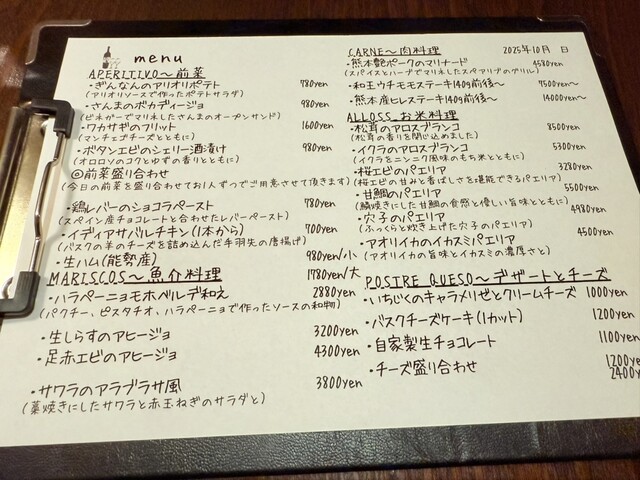 menu
APERITIVO～前菜
・ぎんなんのアリオリポテト 780yen
(アリオリソースで作ったポテトサラダ)
・さんまのボカディージョ 980yen
(ビネガーでマリネしたさんまのオープンサンド)
・ワカサギのフリット 1600yen
(マンチェゴチーズとともに)
・ボタンエビのシェリー酒漬け 980yen
(オロロソのコクとゆずの香りとともに)
◎前菜盛り合わせ
(今日の前菜を盛り合わせてお1人ずつでご用意させて頂きます)
・鶏レバーのショコラペースト 780yen
(スペイン産チョコレートと合わせたレバーペースト)
・イディアサバルチキン(1本から) 700yen
(バスクの羊のチーズを詰め込んだ手羽先の唐揚げ)
・生ハム(能勢産) 980yen/小
1780yen/大
MARISCOS～魚介料理
・ハラペーニョモホベルデ和え 2880yen
(パクチー、ピスタチオ、ハラペーニョで作ったソースの和物)
・生しらすのアヒージョ 3200yen
・足赤エビのアヒージョ 4300yen
・サワラのアラブラサ風 3800yen
(藁焼きにしたサワラと赤玉ねぎのサラダと)
CARNE～肉料理
2025年10月 日
・熊本艶ポークのマリナード 4580yen
(スパイスとハーブでマリネしたスペアリブのグリル)
・和王ウチモモステーキ140g前後～ 7500yen～
・熊本産ヒレステーキ140g前後～ 14000yen～
ALLOSS お米料理
・松茸のアロスブランコ 8500yen
(松茸の香りを閉じ込めました)
・イクラのアロスブランコ 5300yen
(イクラをニンニク風味のもち米とともに)
・桜エビのパエリア 3280yen
(桜エビの甘みと香ばしさを堪能できるパエリア)
・甘鯛のパエリア 5500yen
(鱗焼きにした甘鯛の食感と優しい旨味とともに)
・穴子のパエリア 4980yen
(ふっくらと炊き上げた穴子のパエリア)
・アオリイカのイカスミパエリア 4500yen
(アオリイカの旨味とイカスミの濃厚さと)
POSTRE QUESO～デザートとチーズ
・いちじくのキャラメリゼとクリームチーズ 1000yen
・バスクチーズケーキ(1カット) 1200yen
・自家製生チョコレート 1100yen
・チーズ盛り合わせ 1200ye
2400y